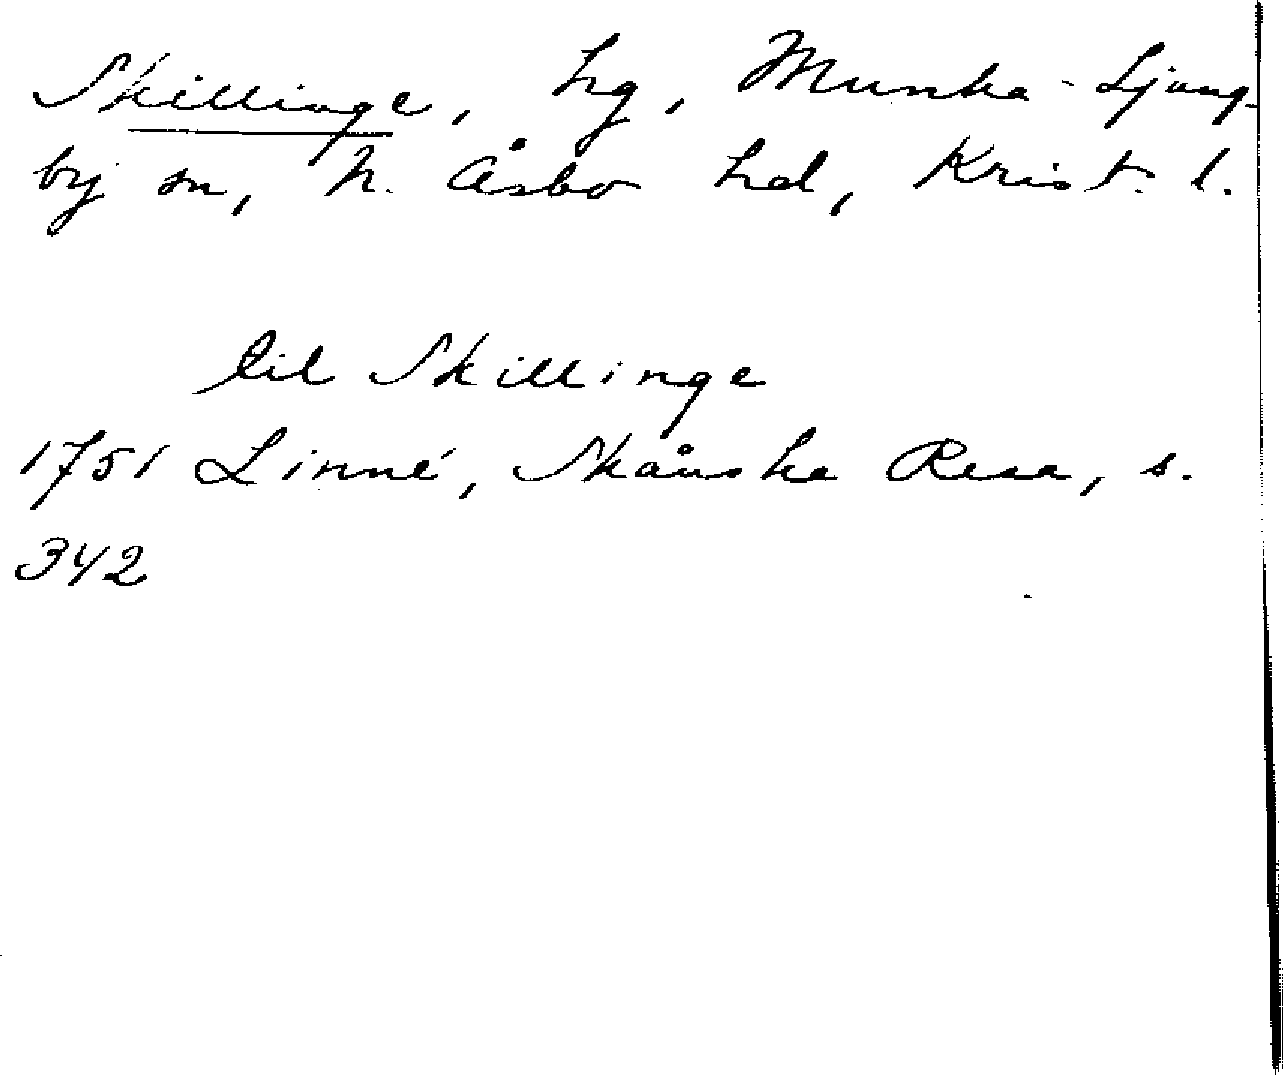 Skillinge, hg, Munka-Ljung-
by sn, N. Åsbo hd, Krist. l.
till Skillinge
1751 Linné, Skånska Resa, s.
342